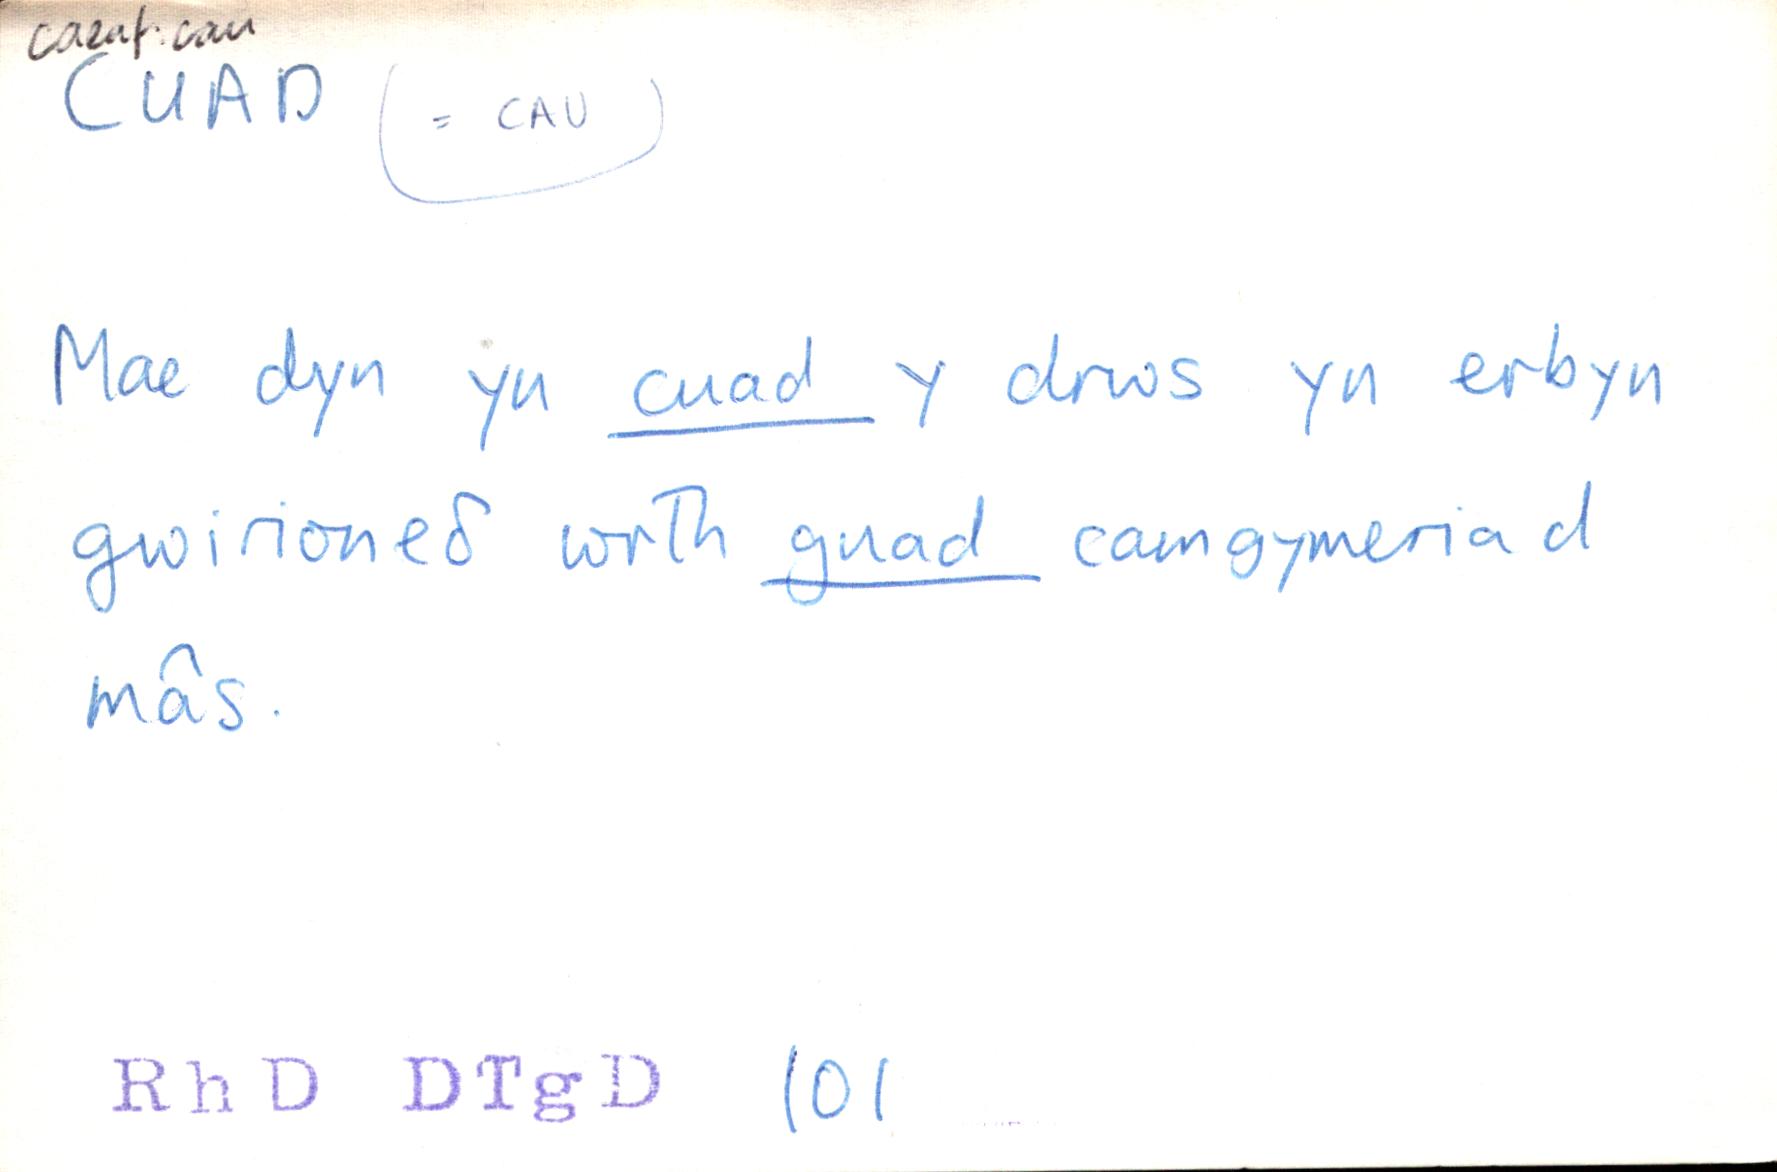 caeaf: cau
CUAD (= CAU)
Mae dyn yn cuad y drws yn erbyn
gwirioneδ wrth guad camgymeriad
mâs.
RhD DTgD 101